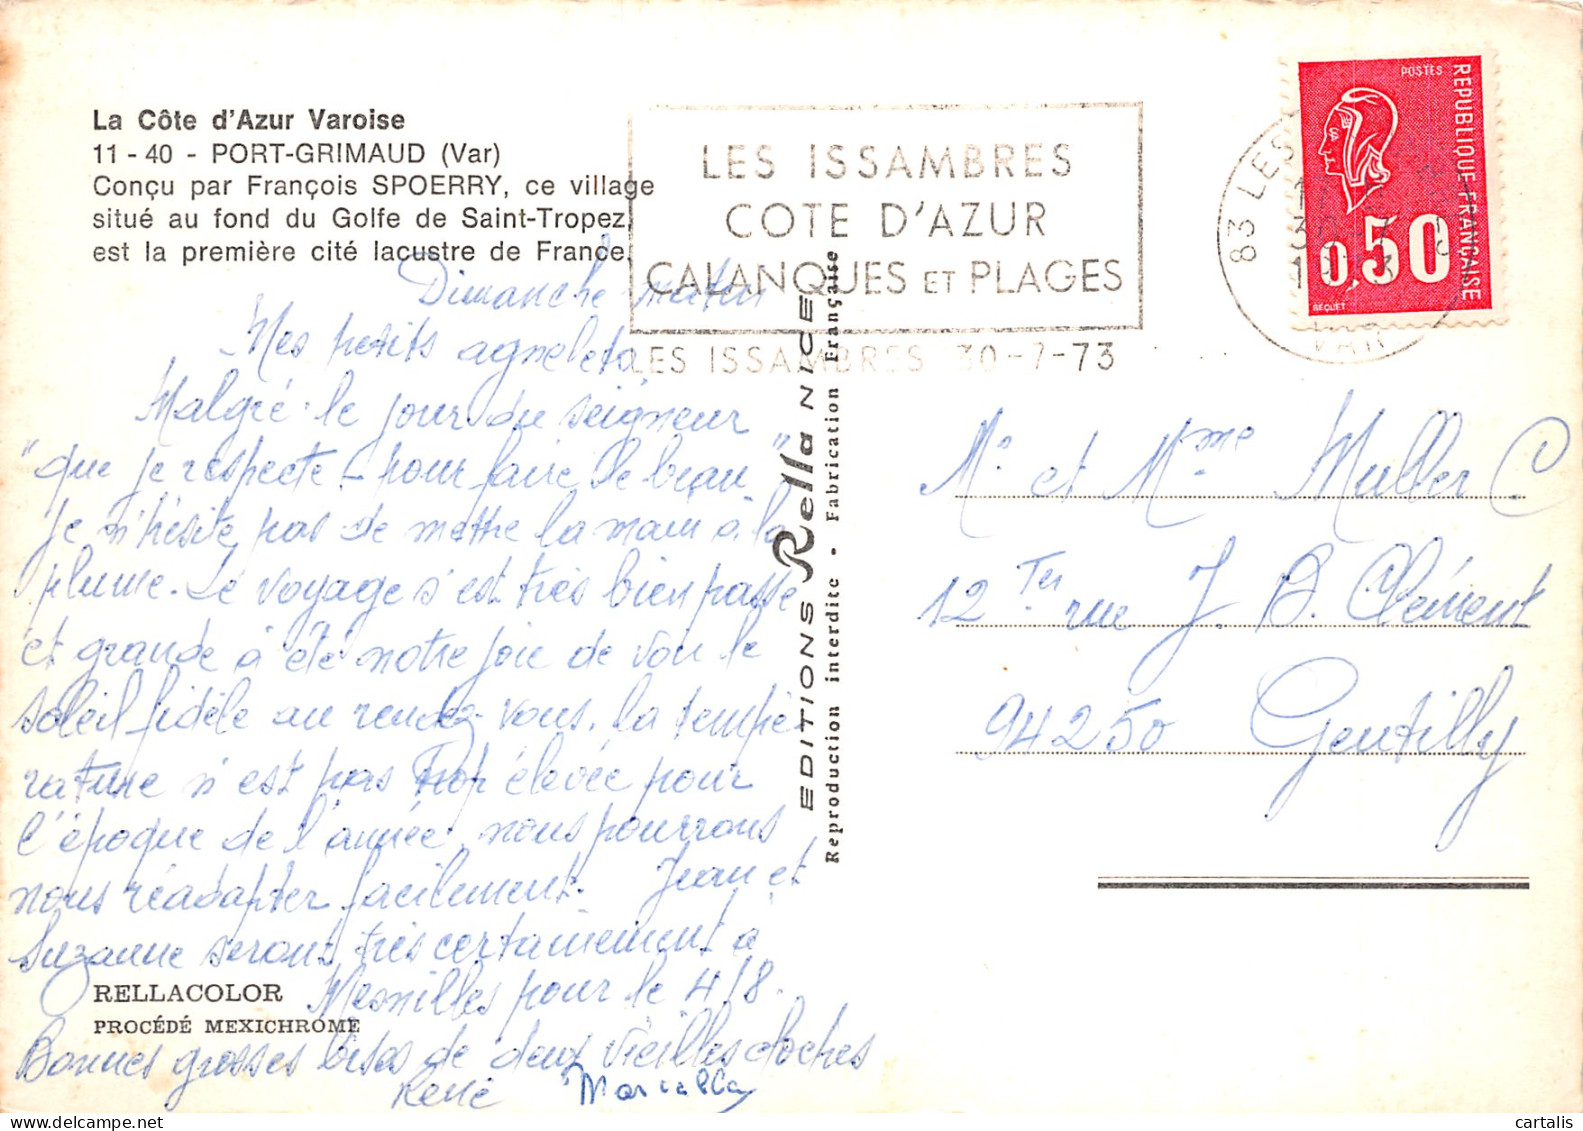 La Côte d'Azur Varoise
11 - 40 - PORT-GRIMAUD (Var)
Conçu par François SPOERRY, ce village
situé au fond du Golfe de Saint-Tropez,
est la première cité lacustre de France.
LES ISSAMBRES
COTE D'AZUR
CALANQUES ET PLAGES
LES ISSAMBRES 30-7-73
83 LES
VAR
POSTES
REPUBLIQUE FRANÇAISE
0,50
BEQUET
Dimanche matin
Mes petits agnelets
Malgré le jour du seigneur
"que je respecte - pour faire le beau"
je n'hésite pas de mettre la main à la
plume. Le voyage s'est très bien passé
et grande à été notre joie de voir le
soleil fidèle au rendez-vous. la tempé-
rature n'est pas trop élevée pour
l'époque de l'année, nous pourrons
nous réadapter facilement. Jean et
Suzanne seront très certainement à
Mesnilles pour le 4/8.
Bonnes grosses bises de deux vieilles cloches
René Marcelle
RELLACOLOR
PROCÉDÉ MEXICHROME
EDITIONS Rella NICE
Reproduction interdite • Fabrication Française
Mr et Mme Muller C
12 Ter rue J. B. Clément
94250 Gentilly
cartalis